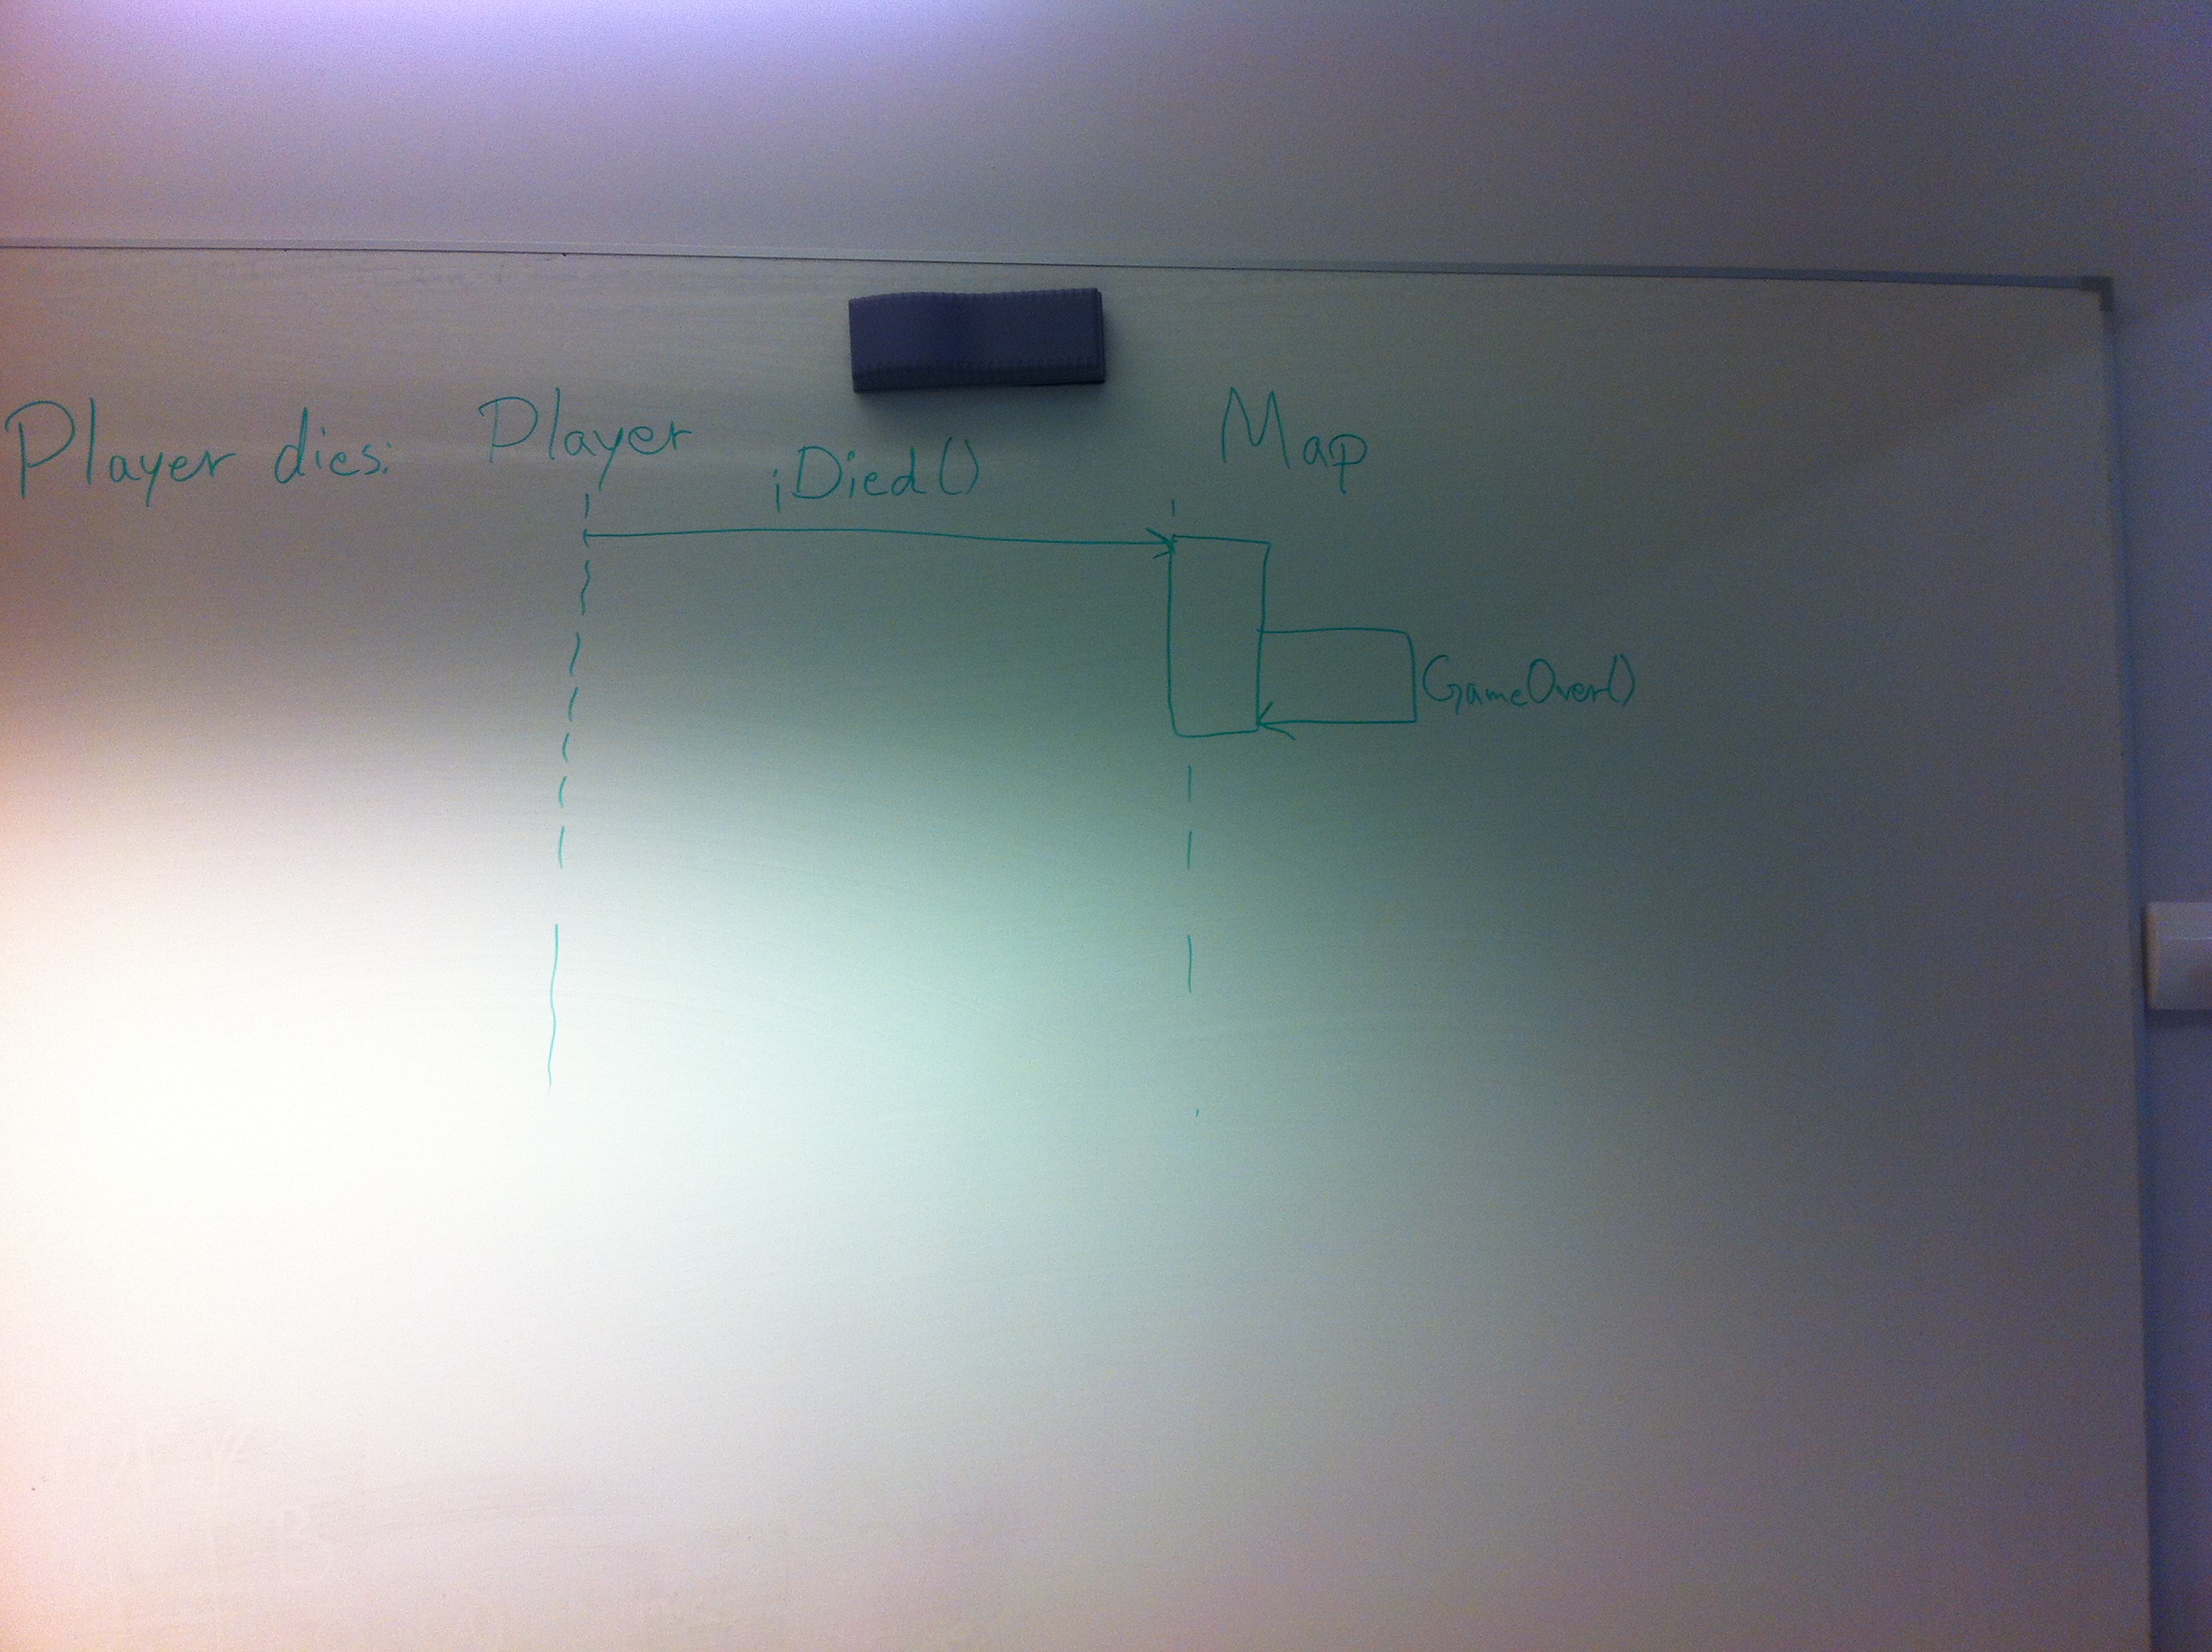 Player dies:
Player
Map
iDied()
GameOver()